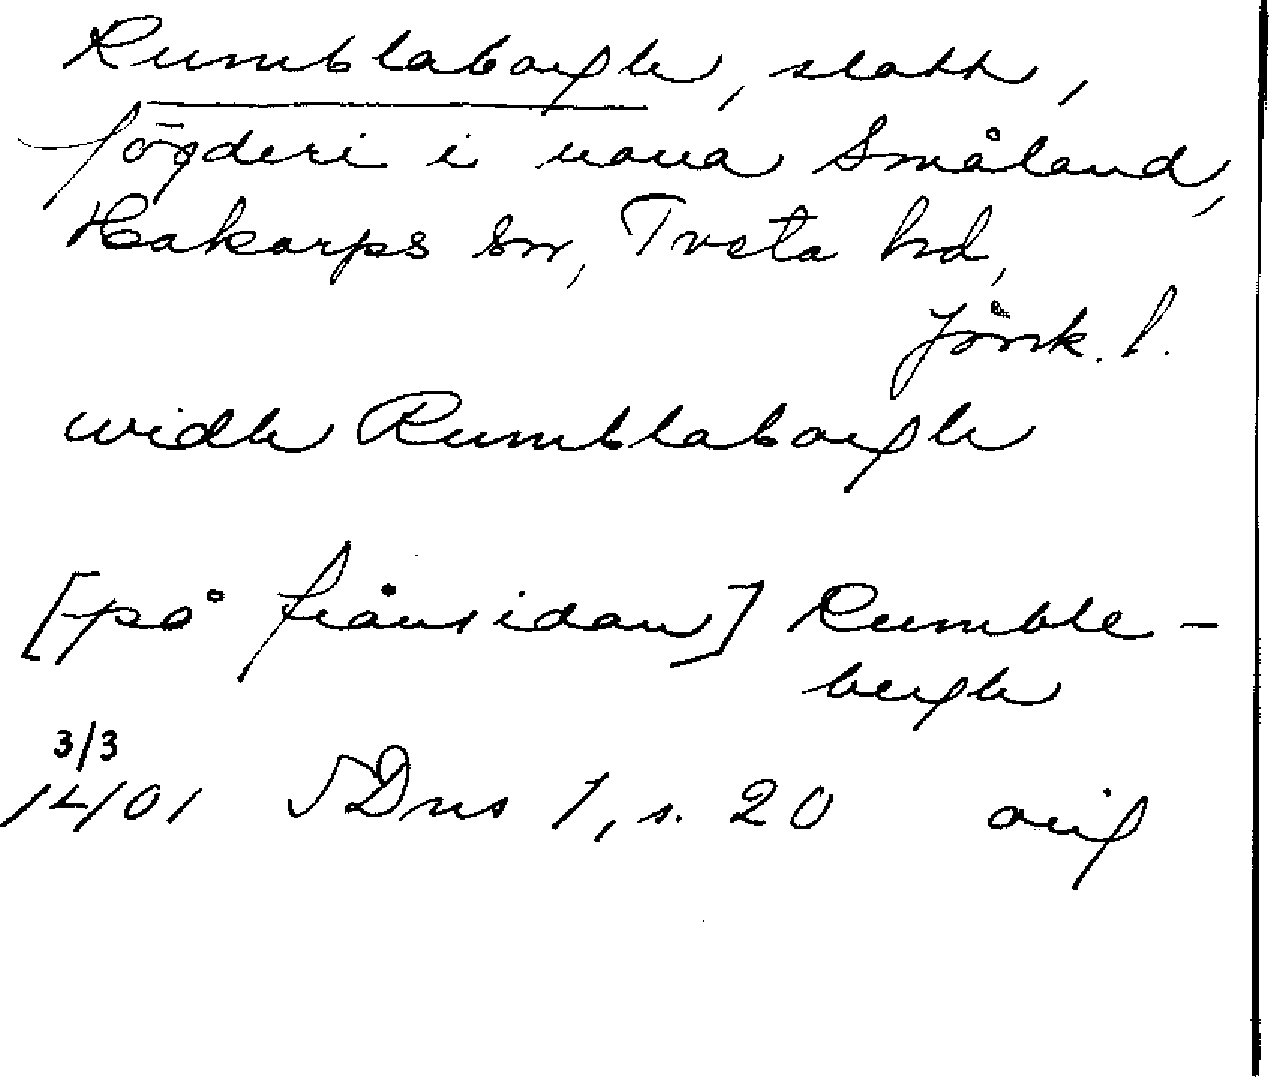 Rumblaborgh, slott,
fögderi i norra Småland,
Hakarps sn, Tveta hd,
Jönk. l.
widh Rumblaborgh
[på frånsidan] Rumble-
bergh
3/3
1401 SDns 1, s. 20 orig